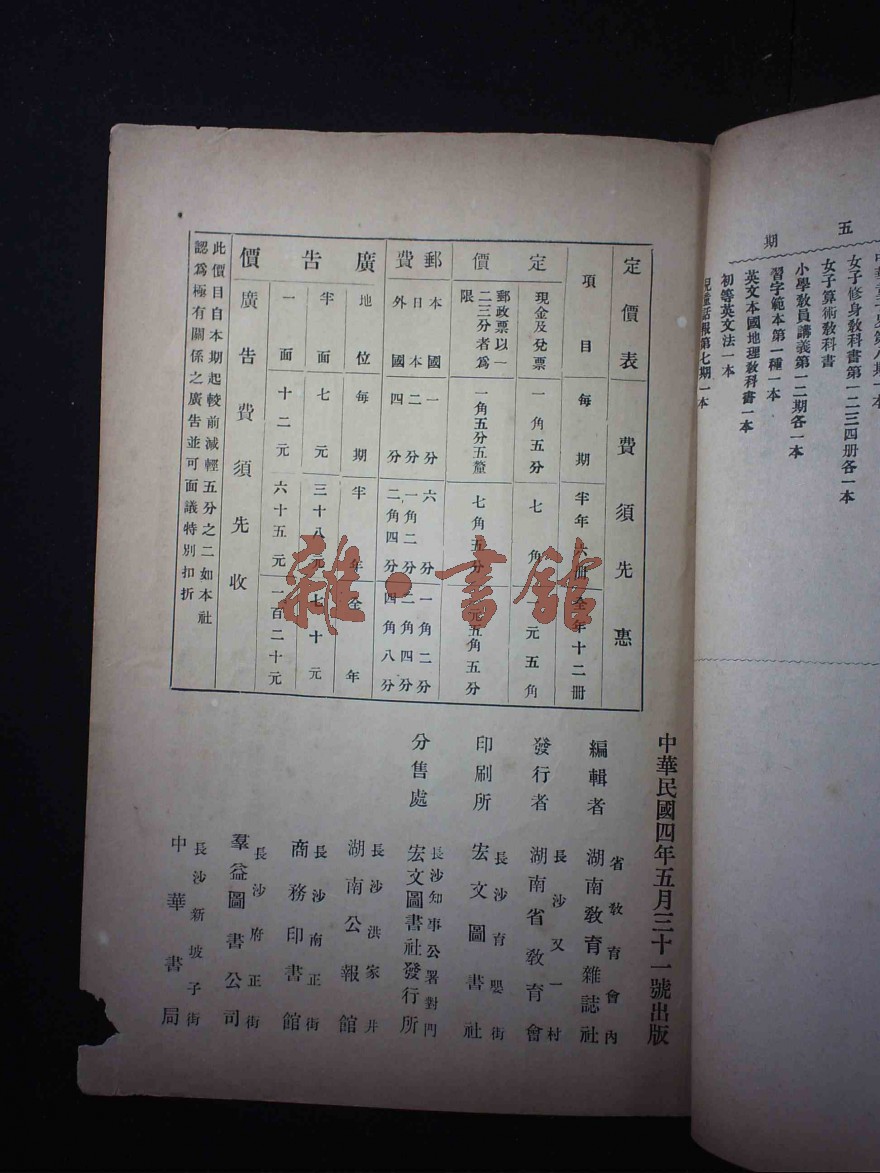 五
期
女子修身教科書第一二三四册各一本
女子算術教科書
小學教員講義第一二期各一本
習字範本第一種一本
英文本國地理教科書一本
初等英文法一本
兒童話報第七期一本
定價表 費須先惠
項目 每期 半年六册 全年十二册
定價
現金及兌票 一角五分 七角 一元五角
郵政票以一二三分者爲限 一角五分五釐 七角五分 一元五角五分
郵費
本國 一分 六分 一角二分
日本 二分 一角二分 二角四分
外國 四分 二角四分 四角八分
廣告價
地位 每期 半年 全年
半面 七元 三十八元 七十元
一面 十二元 六十五元 一百二十元
廣告費須先收
此價目自本期起較前減輕五分之二如本社
認爲極有關係之廣告並可面議特別扣折
雜·書館
中華民國四年五月三十一號出版
編輯者 省教育會內 湖南教育雜誌社
發行者 長沙又一村 湖南省教育會
印刷所 長沙育嬰街 宏文圖書社
分售處 長沙知事公署對門 宏文圖書社發行所
長沙洪家井 湖南公報館
長沙南正街 商務印書館
長沙府正街 羣益圖書公司
長沙新坡子街 中華書局